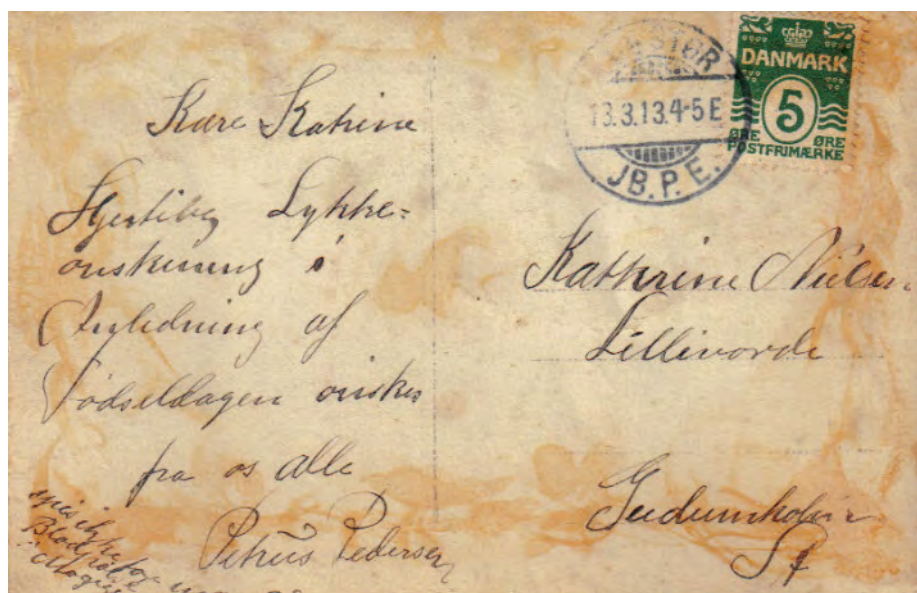 Kære Katrine
Hjertelig Lykke=
ønskning i
Anledning af
Fødseldagen ønskes
fra os alle
Petrus Pedersen
spis ikke for
Blod
13.3.13.4-5 E
JB.P.E.
DANMARK
5
ØRE ØRE
POSTFRIMÆRKE
Kathrine Nielsen
Lillevorde
Gudumholm
St